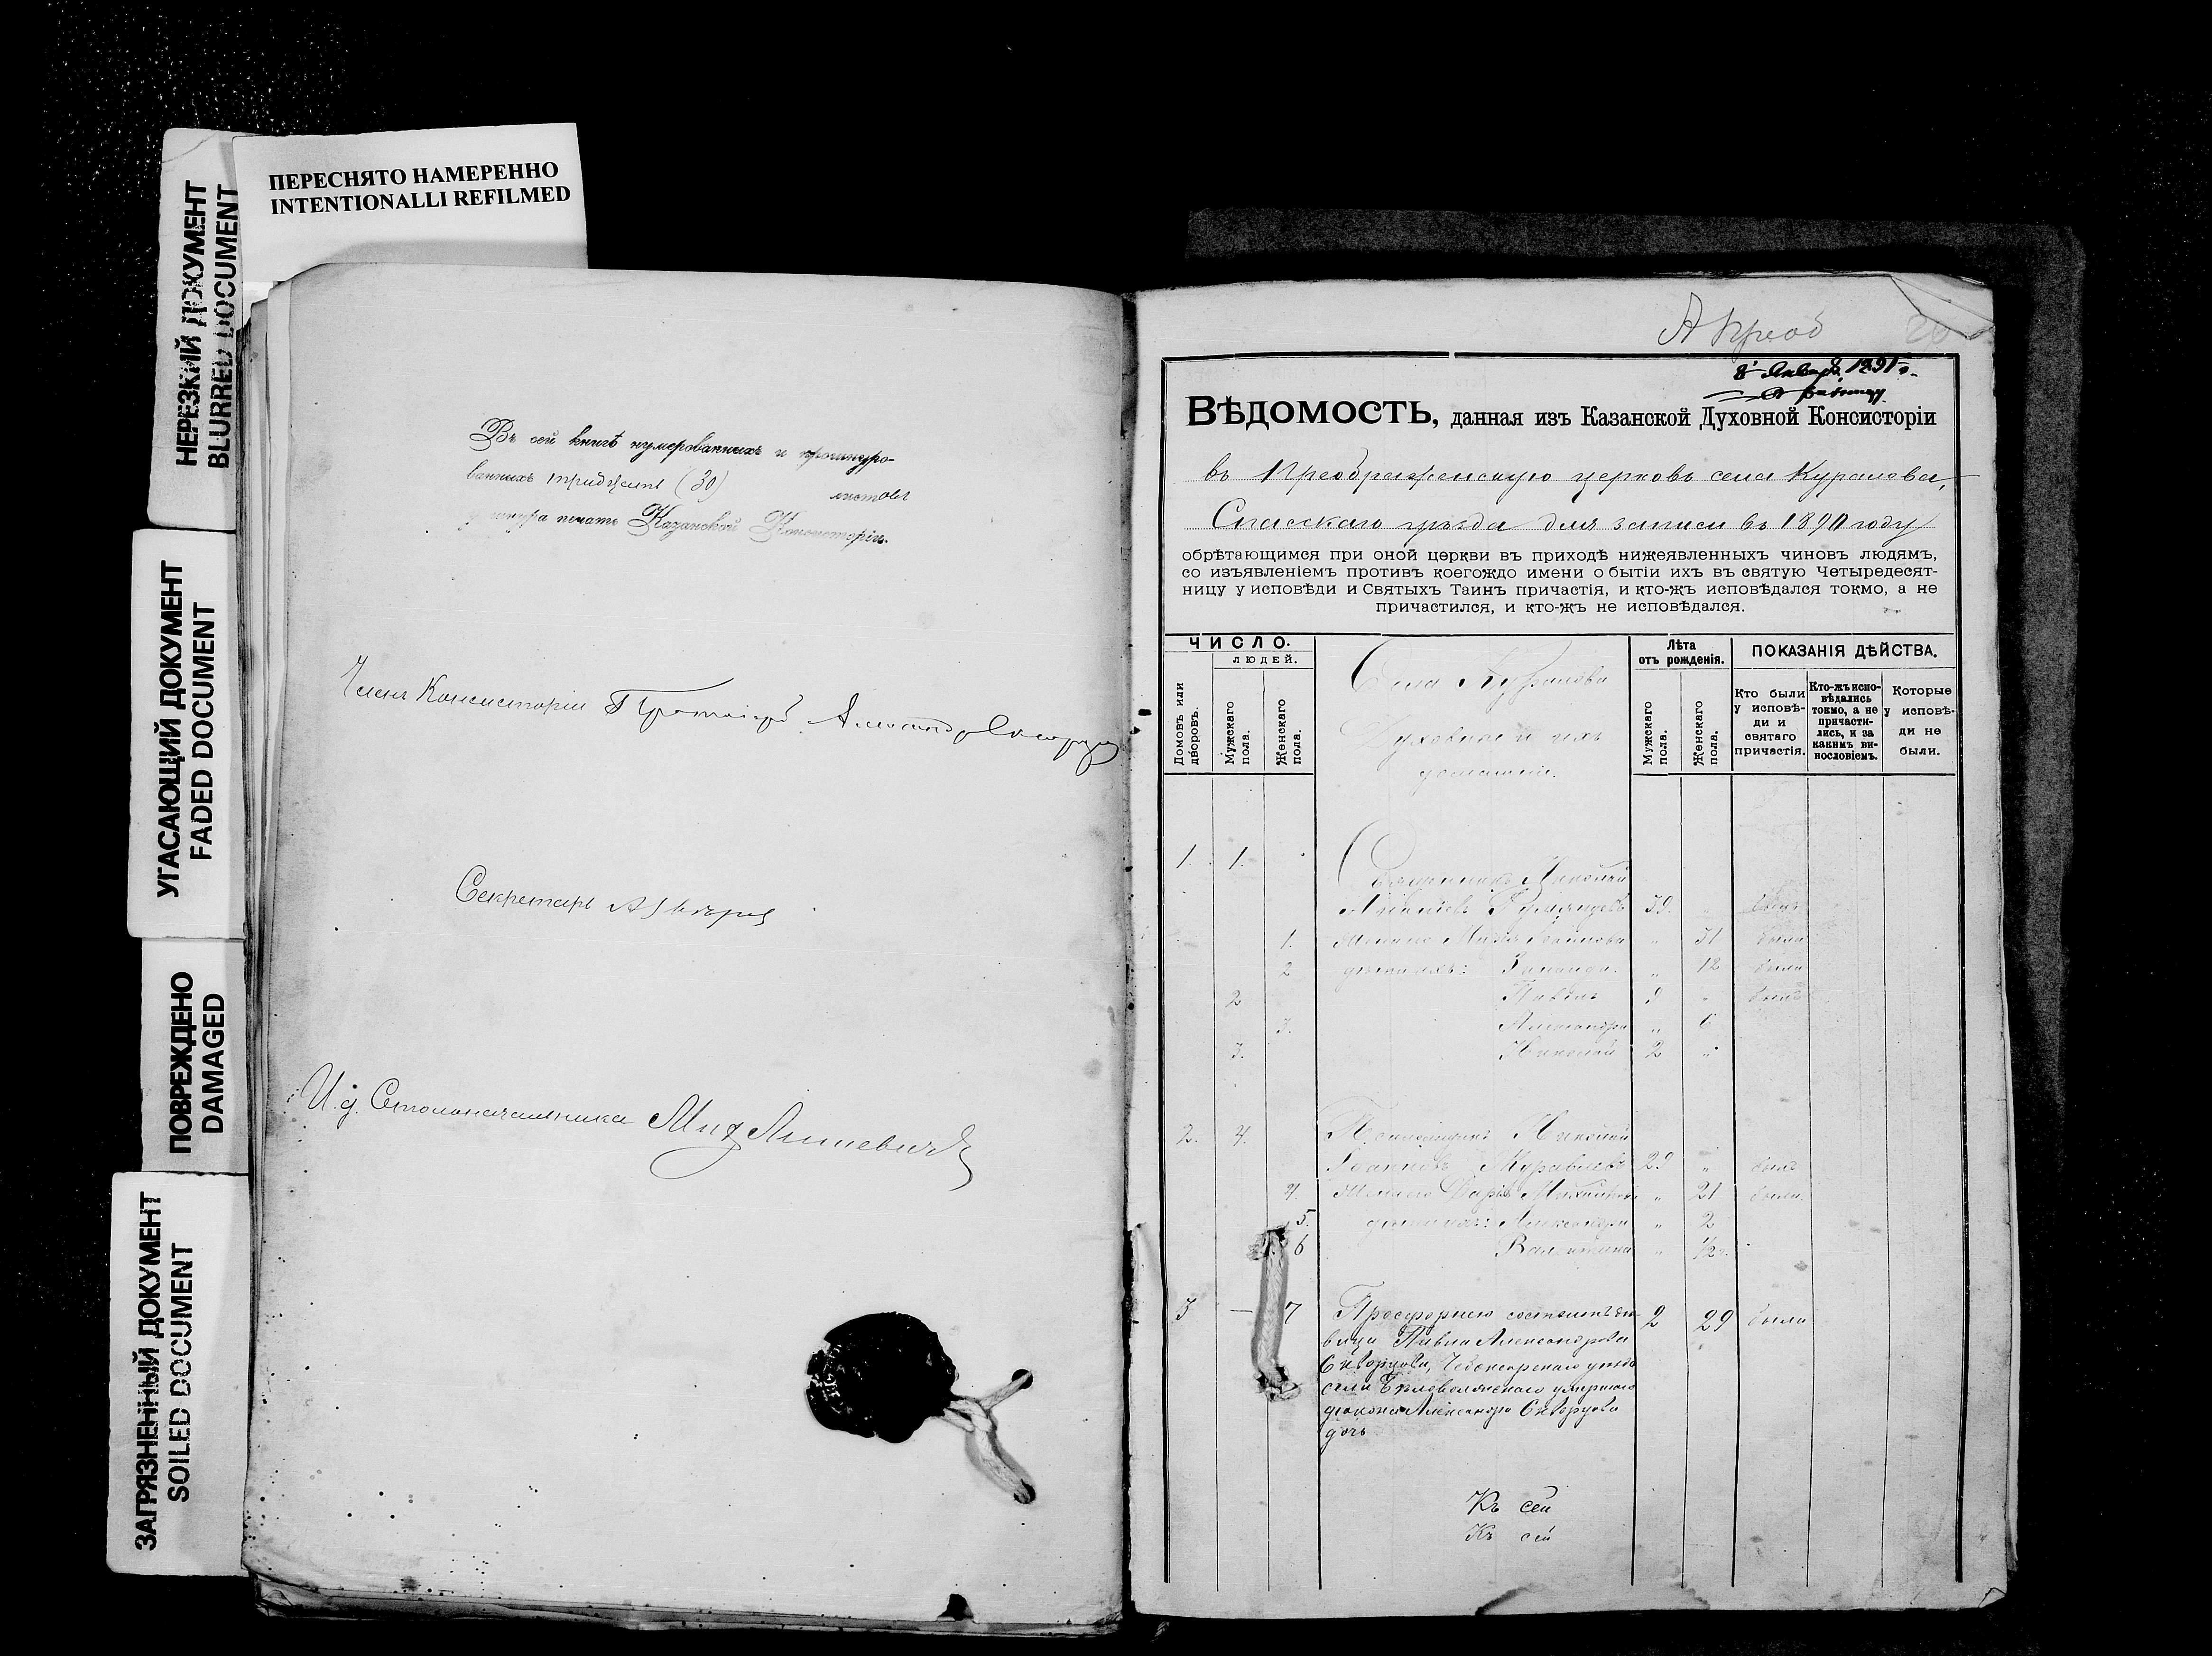 ПЕРЕСНЯТО НАМЕРЕННО
INTENTIONALLI REFILMED
НЕРЕЗКИЙ ДОКУМЕНТ
BLURRED DOCUMENT
УГАСАЮЩИЙ ДОКУМЕНТ
FADED DOCUMENT
ПОВРЕЖДЕНО
DAMAGED
ЗАГРЯЗНЕННЫЙ ДОКУМЕНТ
SOILED DOCUMENT
Въ сей книгѣ нумерованныхъ и прошнуро-
ванныхъ тридцать (30) листовъ
у шнура печать Казанской Консисторіи.
Членъ Консисторіи
Секретарь
И.д. Столоначальника
8 Январ. 1891 г.
ВѢДОМОСТЬ, данная изъ Казанской Духовной Консисторіи
въ Преображенскую церковь села Куралова,
Спасскаго уѣзда для записи въ 1890 году
обрѣтающимся при оной церкви въ приходѣ нижеявленныхъ чиновъ людямъ,
со изъявленіемъ противъ коегождо имени о бытіи ихъ въ святую Четыредесят-
ницу у исповѣди и Святыхъ Таинъ причастія, и кто-жъ исповѣдался токмо, а не
причастился, и кто-жъ не исповѣдался.
ЧИСЛО.
ЛЮДЕЙ.
Домовъ или дворовъ.
Мужскаго пола.
Женскаго пола.
Села Куралова
Духовные и ихъ
домашніе.
Лѣта
отъ рожденія.
Мужскаго пола.
Женскаго пола.
ПОКАЗАНІЯ ДѢЙСТВА.
Кто были у исповѣ-
ди и
святаго
причастія.
Кто-жъ испо-
вѣдались
токмо, а не
причасти-
лись, и за
какимъ ви-
нословіемъ.
Которые
у исповѣ-
ди не
были.
1. 1. Священникъ Николай
Румянцевъ 39. " былъ
1. Жена его Марія Іоаннова " 31 была
2 дѣти ихъ: Зинаида " 12 была
2 Павелъ 9 " былъ
3. Александра " 6
3. Николай 2 "
2. 4. Псаломщикъ Николай
Іоанновъ Журавлевъ 29 " былъ
4. Жена его Дарія " 21 была
5. дѣти ихъ: Александра " 2
6 Валентина " 1/2
3 — 7 Просфорнею состоитъ дѣ- 2 29 была
вица Павла Александрова
Скворцова, Чебоксарскаго уѣзда
села Бѣловолжскаго умершаго
діакона Александра Скворцова
дочь
Къ сей
Къ сей